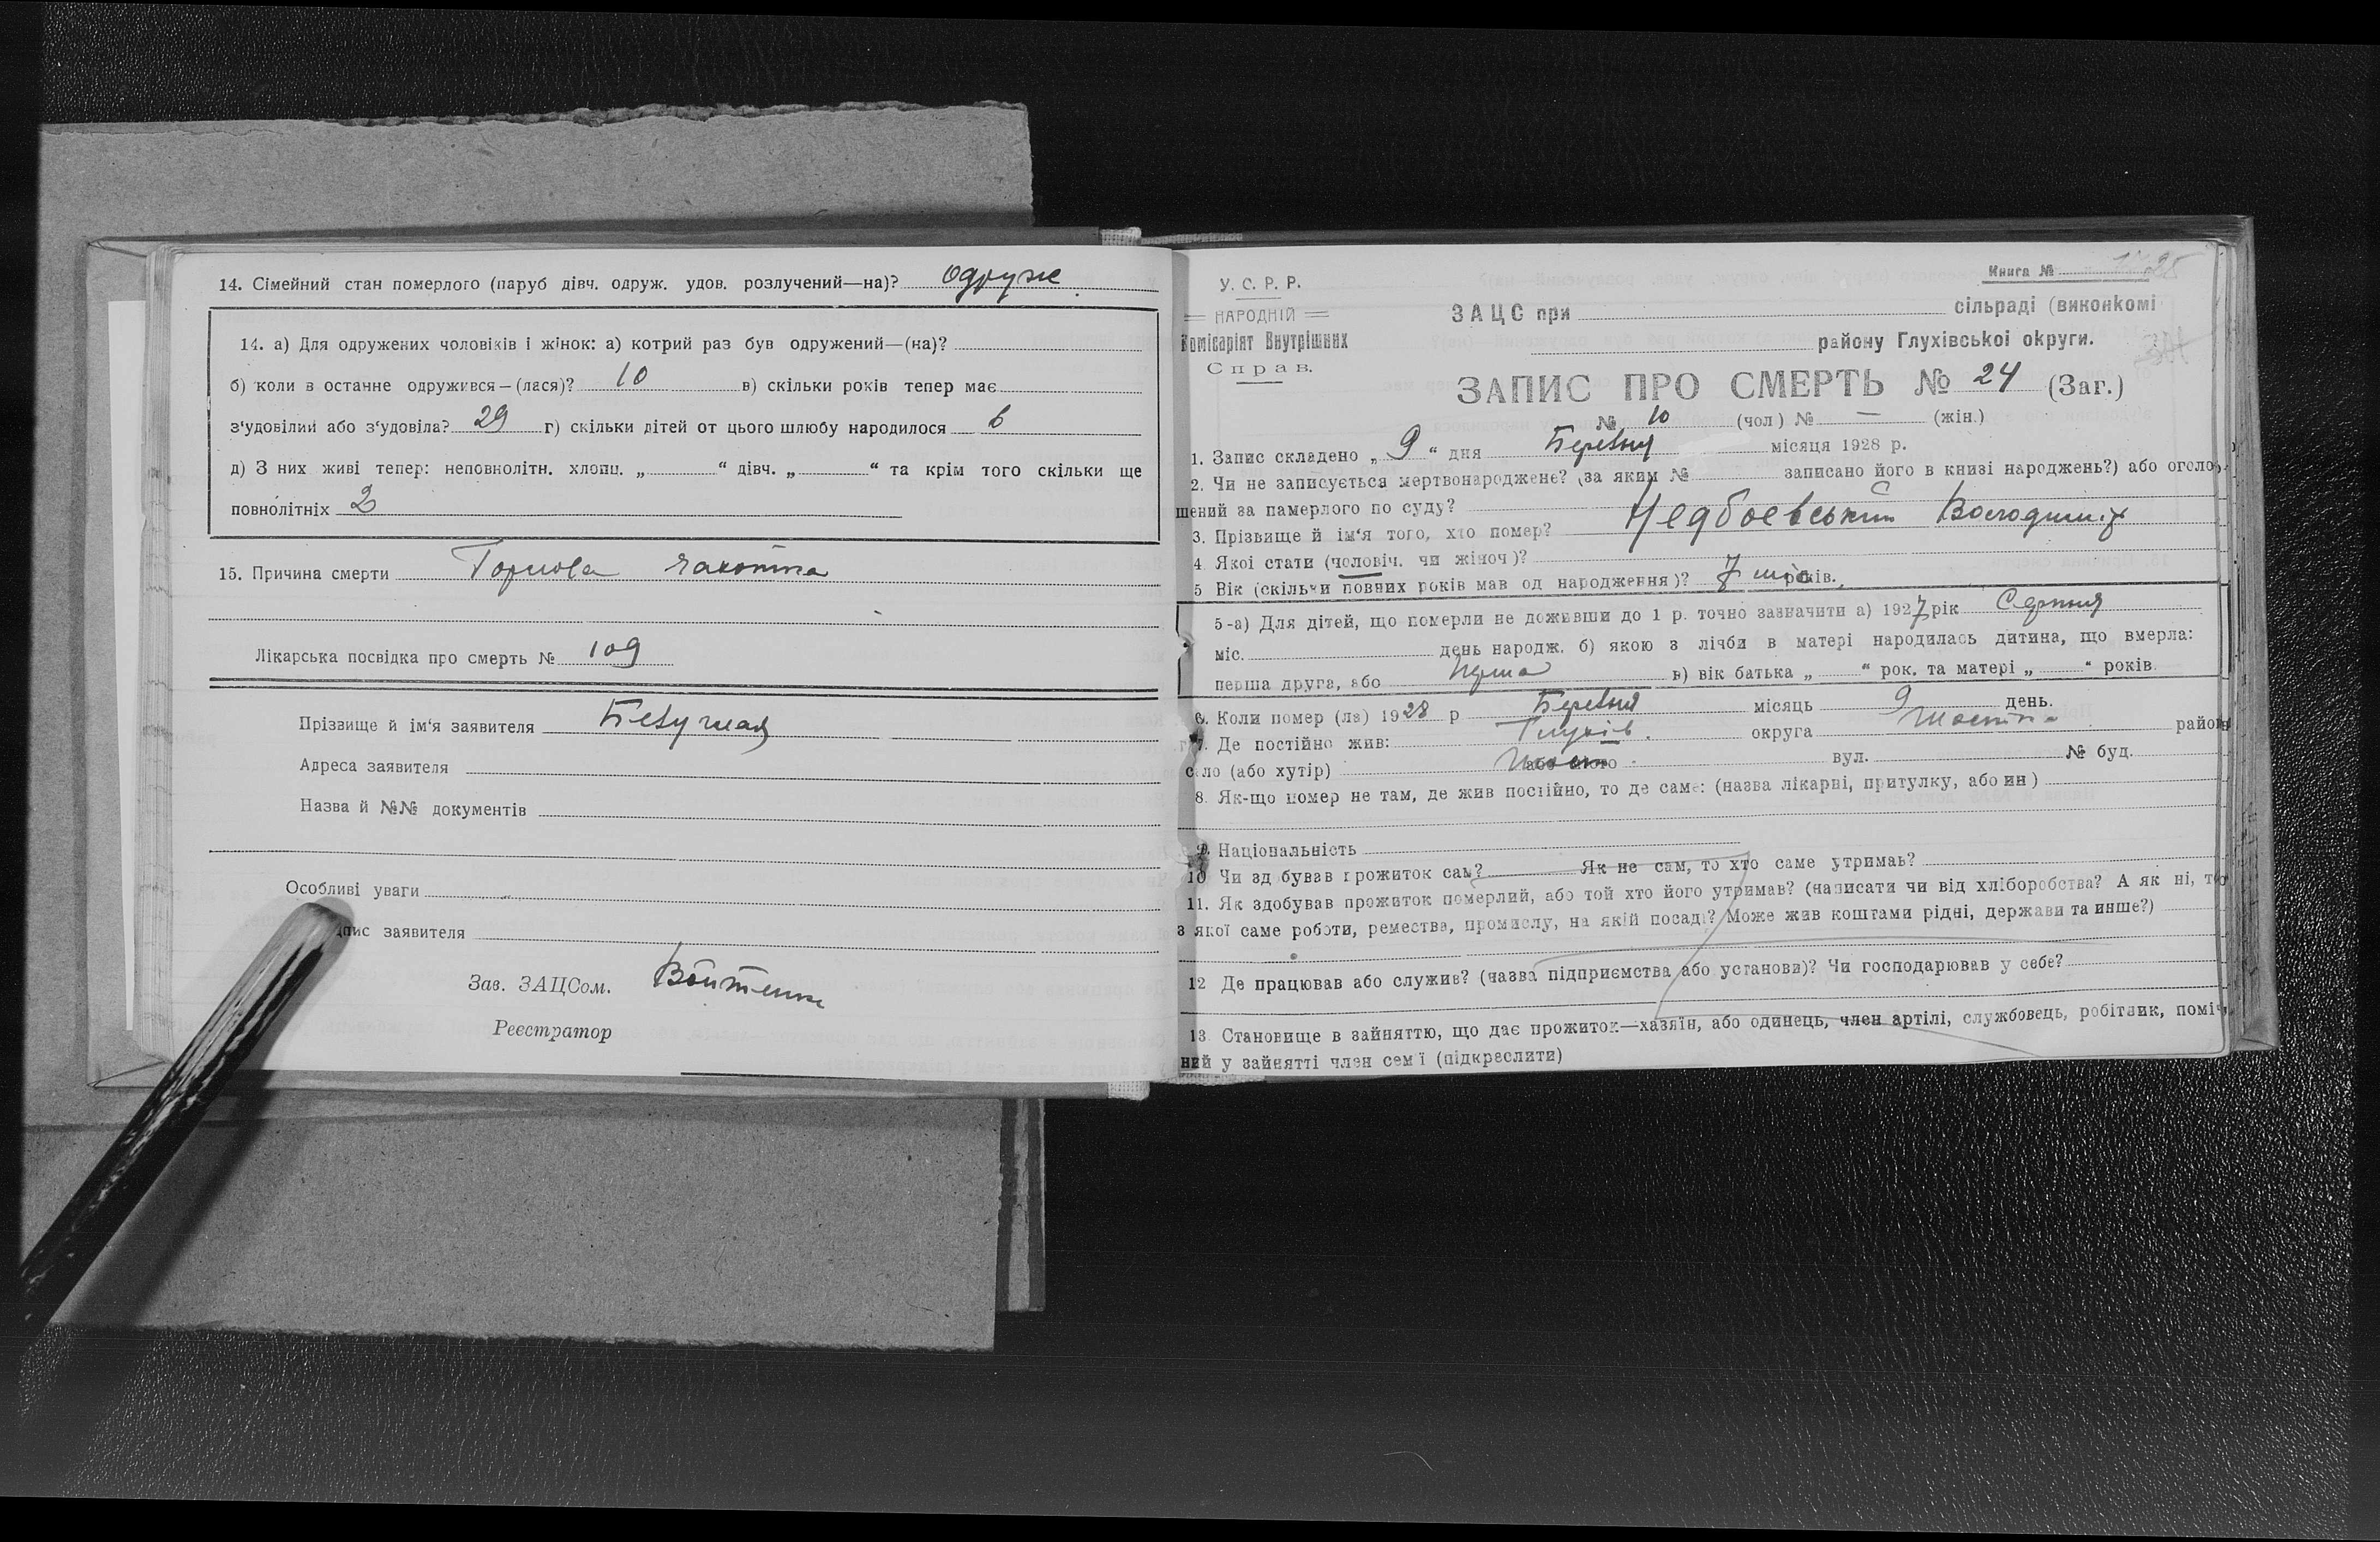 14. Сімейний стан померлого (паруб дівч. одруж. удов. розлучений—на)? одруж.
14. а) Для одружених чоловіків і жінок: а) котрий раз був одружений—(на)?
б) коли в останне одружився—(лася)? 10 в) скільки років тепер має
з'удовілий або з'удовіла? 29 г) скільки дітей от цього шлюбу народилося 6
д) З них живі тепер: неповнолітн. хлопц. „ “ дівч. „ “ та крім того скільки ще
повнолітніх 2
15. Причина смерти Горлова
Лікарська посвідка про смерть № 109
Прізвище й ім'я заявителя
Адреса заявителя
Назва й №№ документів
Особливі уваги
пис заявителя
Зав. ЗАЦСом. Войтенко
Реєстратор
Книга №
У. С. Р. Р.
НАРОДНІЙ
Комісаріят Внутрішних
Справ.
ЗАЦС при сільраді (виконкомі
району Глухівської округи.
ЗАПИС ПРО СМЕРТЬ № 24 (Заг.)
№ 10 (чол) № — (жін.)
1. Запис складено „ 9 “ дня Березня місяця 1928 р.
2. Чи не записується мертвонароджене? (за яким № записано його в книзі народжень?) або оголо-
шений за памерлого по суду?
3. Прізвище й ім'я того, хто помер? Недбоевський Володимір
4. Якої стати (чоловіч. чи жіноч)?
5 Вік (скільки повних років мав од народження)? 7 міс років.
5-а) Для дітей, що померли не доживши до 1 р. точно зазначити а) 1927 рік Серпня
міс. день народж. б) якою з лічби в матері народилась дитина, що вмерла:
перша друга, або перша в) вік батька „ “ рок. та матері „ “ років
6. Коли помер (ла) 1928 р Березня місяць 9 день.
7. Де постійно жив: Глухів. округа Шостка район
село (або хутір) або місто вул. № буд.
8. Як-що помер не там, де жив постійно, то де саме: (назва лікарні, притулку, або ин)
9. Національність
10 Чи здбував прожиток сам? Як не сам, то хто саме утримав?
11. Як здобував прожиток померлий, або той хто його утримав? (написати чи від хліборобства? А як ні, то
з якої саме роботи, ремества, промислу, на якій посаді? Може жив коштами рідні, держави та инше?)
12 Де працював або служив? (назва підприємства або установи)? Чи господарював у себе?
13. Становище в зайняттю, що дає прожиток—хазяїн, або одинець, член артілі, службовець, робітник, поміч
ний у зайнятті член сем'ї (підкреслити)